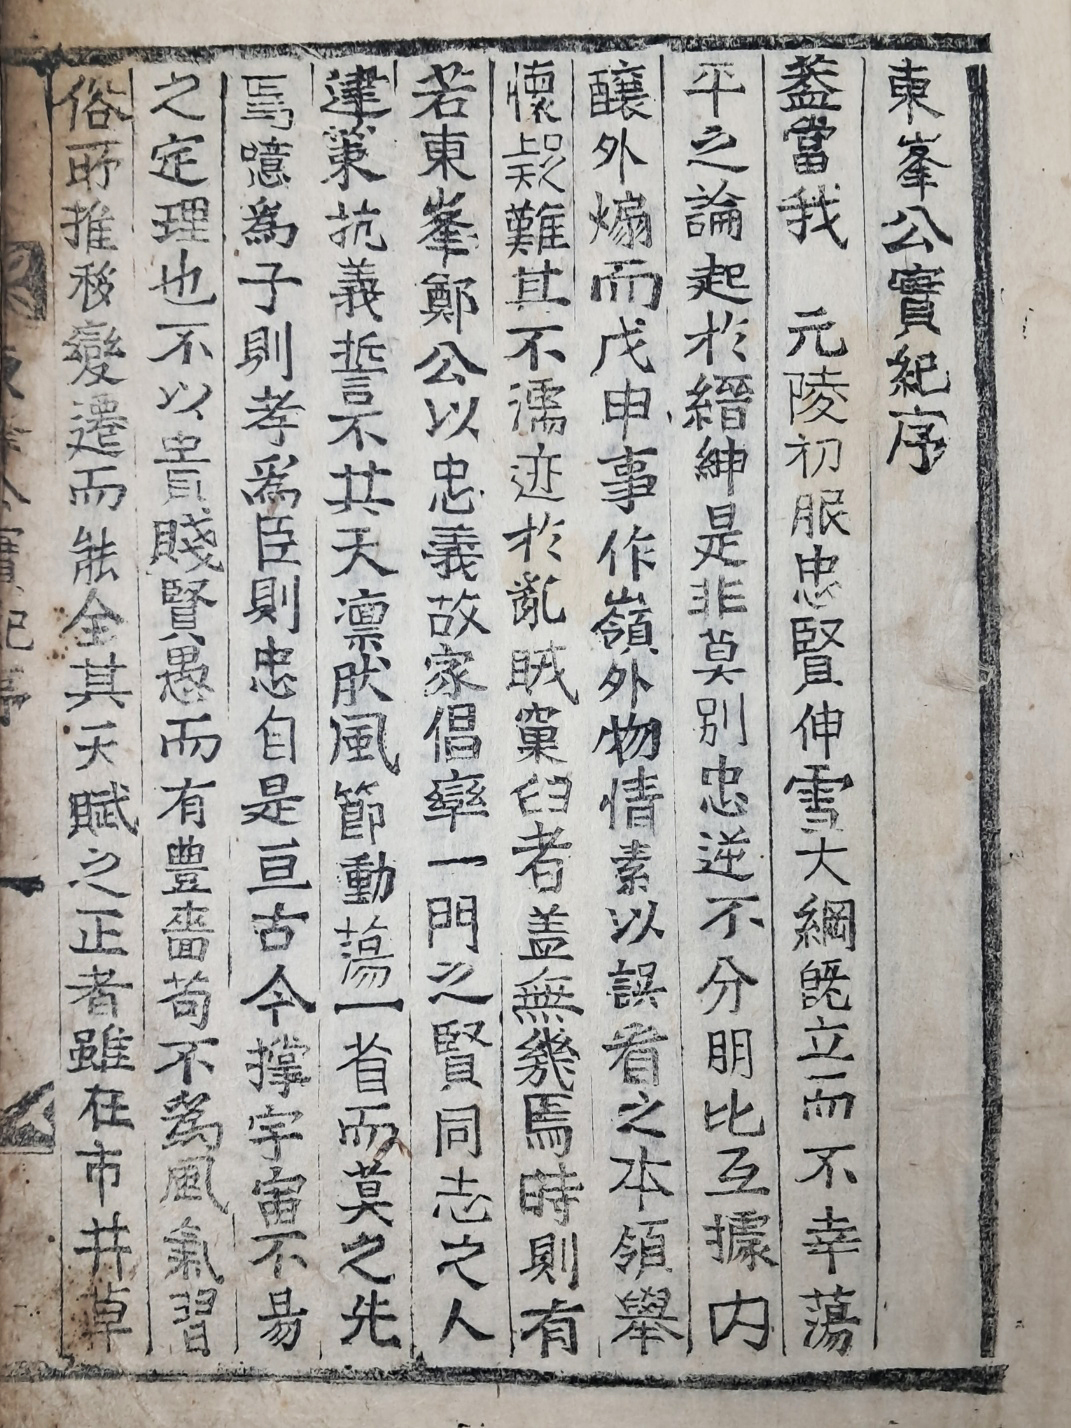 東峯公實紀序
蓋當我 元陵初服忠賢伸雪大綱旣立而不幸蕩
平之論起於縉紳是非莫別忠逆不分朋比互據内
釀外煽而戊申事作嶺外物情素以誤看之本領擧
懷疑難其不濡迹於亂賊窠臼者盖無幾焉時則有
若東峯鄭公以忠義故家倡率一門之賢同志之人
建策抗義誓不共天凛然風節動蕩一省而莫之先
焉噫爲子則孝爲臣則忠自是亘古今撑宇宙不易
之定理也不以貴賤賢愚而有豊嗇苟不爲風氣習
俗所推移變遷而能全其天賦之正者雖在市井草